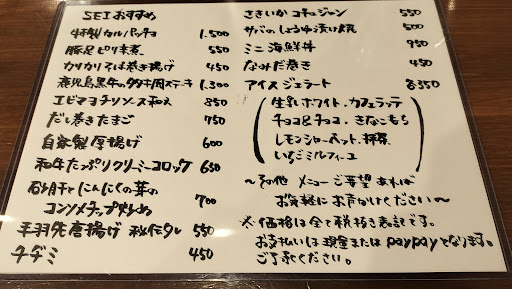 SEIおすすめ
特製カルパッチョ 1,500
豚足ピリ辛煮 550
カリカリそば巻き揚げ 450
鹿児島黒牛の タタキ肉ステーキ 1,300
エビマヨチリソース和え 850
だし巻きたまご 750
自家製厚揚げ 600
和牛たっぷりクリーミーコロッケ 650
砂肝とにんにくの芽の
コンソメチップ炒め 700
手羽先唐揚げ 秘伝タレ 550
チヂミ 450
さきいかコチュジャン 550
サバのしょうゆ漬け焼 500
ミニ海鮮丼 950
なみだ巻き 450
アイスジェラート 各350
生乳ホワイト・カフェラッテ
チョコ&チョコ・きなこもち
レモンシャーベット・抹茶
いちごミルフィーユ
〜その他 メニューご要望あれば
お気軽にお声かけください〜
※価格は全て税抜き表記です。
お支払いは現金またはpaypayとなります。
ご了承ください。